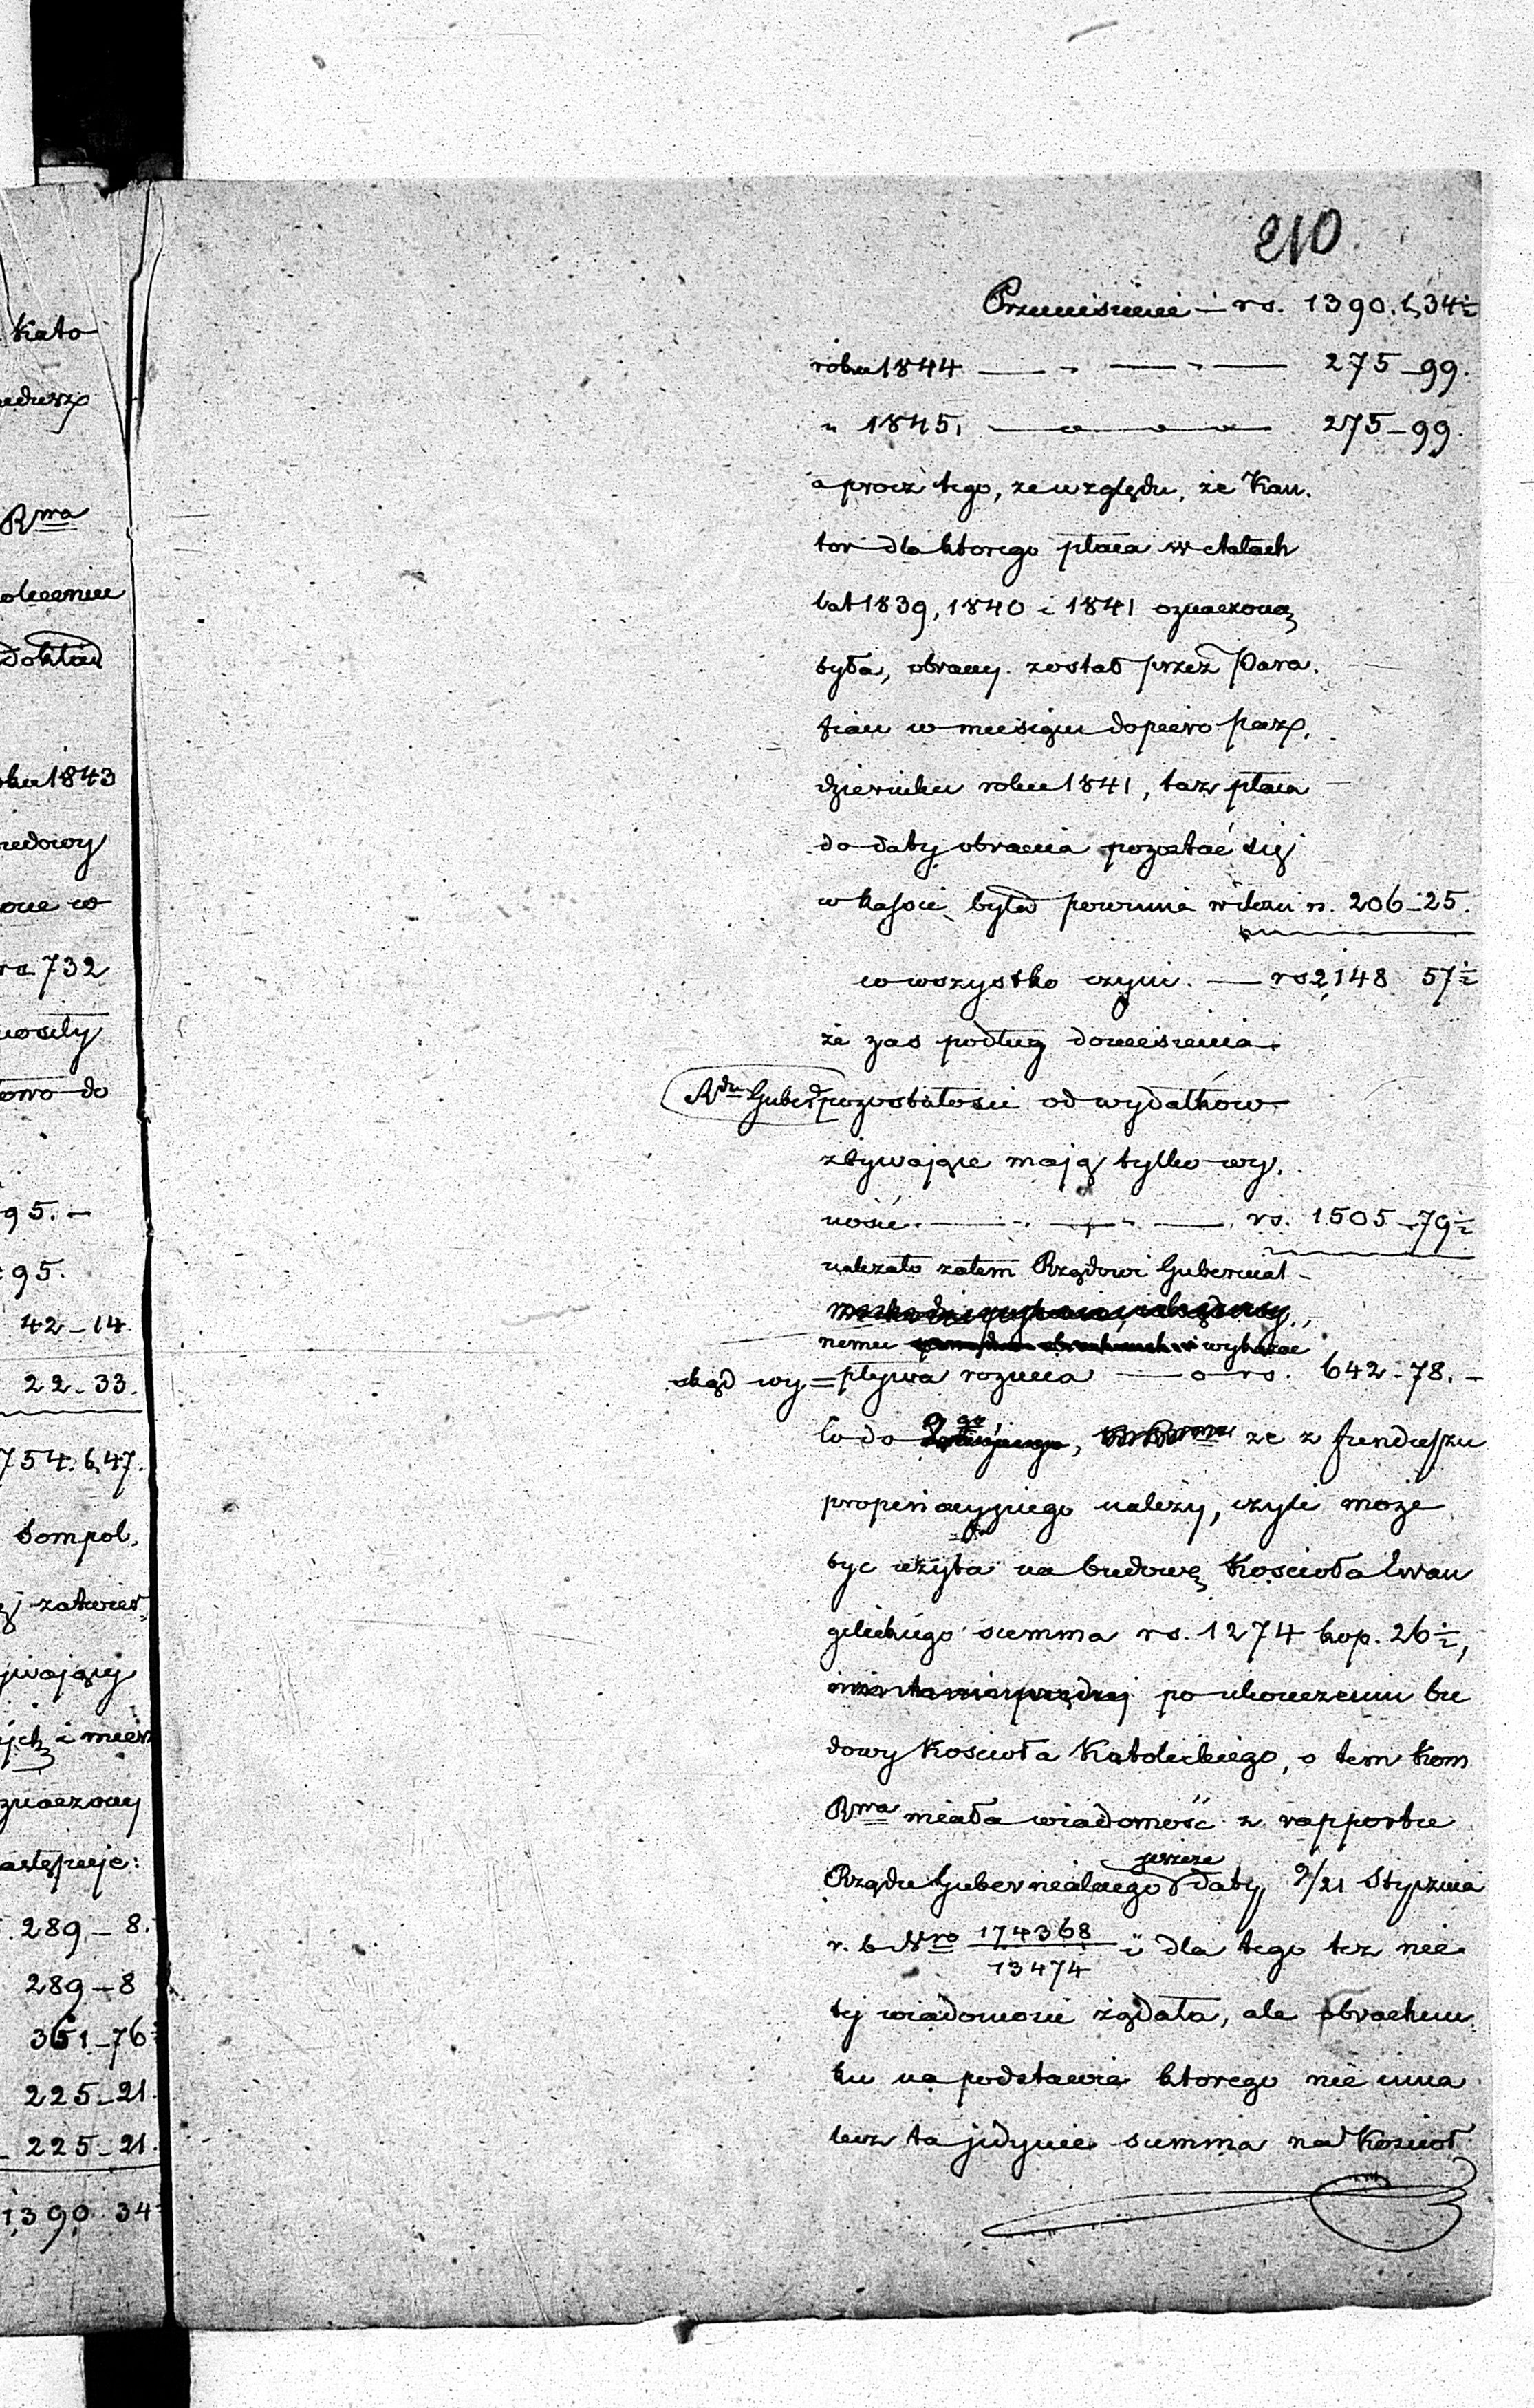 Kato
Rma
oleceniu
Dokład
oku 1843
budowy
one w
ra 732
nosiły
owo do
95. —
95.
42 — 14.
22 — 33.
754. k. 47.
Sompol.
zatwier
ywającej
ych i miesz
znaczony
astępuje:
289 — 8.
289 — 8
361 — 76½
225 — 21.
225 — 21.
1390 34
210
Przeniesienie — rs. 1390. k. 34½
roku 1844 — „ — „ — 275 — 99.
„ 1845, — „ — „ — 275 — 99.
a procz tego, ze względu, że Kan.
tor dla ktorego płaca w etatach
lat 1839, 1840 i 1841 oznaczoną
była, obrany został przez Para.
fian w miesiącu dopiero Paz.
dzierniku roku 1841, taż płaca
do daty obrania pozostać się
w kassie była powinna w ilości rs. 206 — 25.
co wszystko czyni. — rs 2148 57½
że zas podług doniesienia
Rdu Gubern pozostałości od wydatków
zbywające mają tylko wy.
nosić — „ — „ — rs. 1505 — 79½
należało zatem Rządowi Gubernial
nemu wykazać
skąd wy = pływa roznica — o — rs. 642 — 78. —
Co do 2go, że z funduszu
propinacyjnego należy, czyli może
byc użyta na budowę Kościoła Ewan
gelickiego summa rs. 1274 kop. 26½,
po ukonczeniu bu
dowy Kościoła Katolickiego, o tem Kom
Rwa miała wiadomość z rapportu
Rządu Gubernialnego jeszcze daty 9/21 Stycznia
r. b. Nro 174368/13474 i dla tego też nie
tej wiadomosci żądała, ale obrachun
ku na podstawie ktorego nie inna
lecz ta jedynie summa na Koscioł